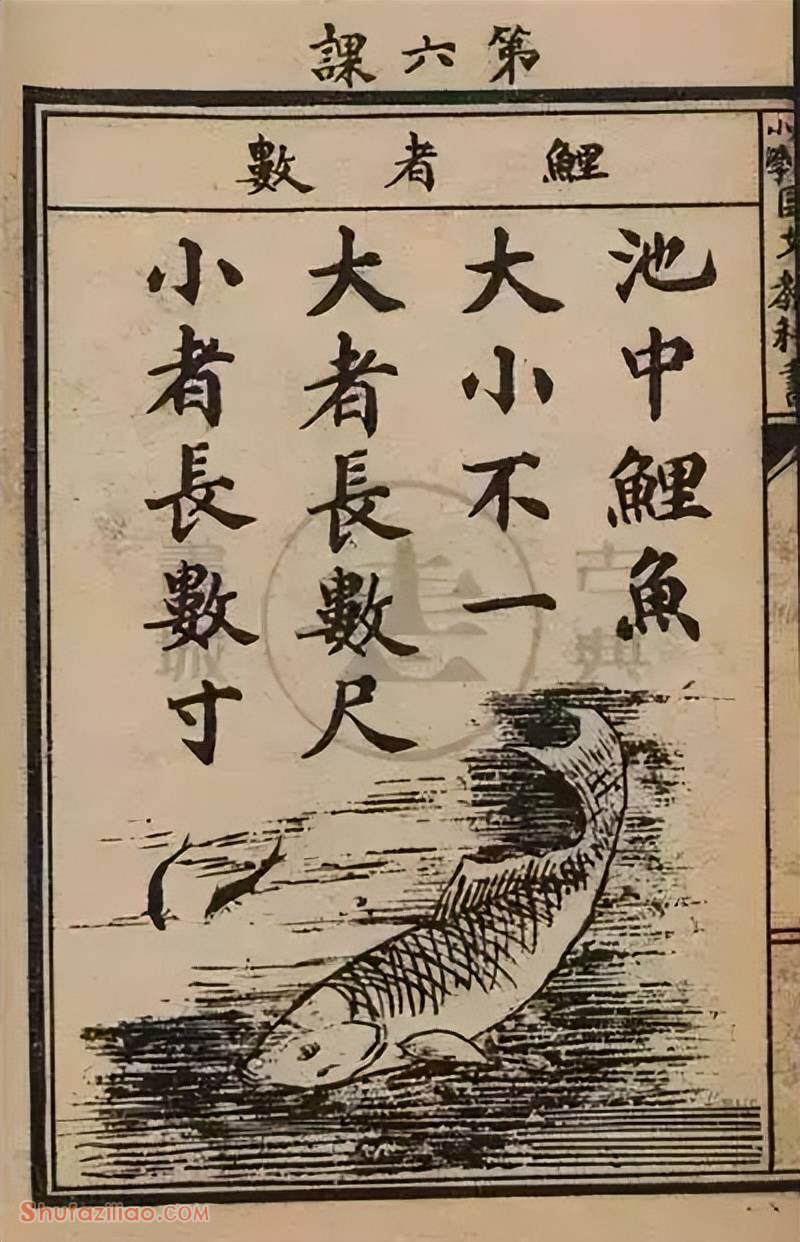 第六課
鯉者數
池中鯉魚
大小不一
大者長數尺
小者長數寸
小學國文教科書
古典書城
Shufaziliao.com